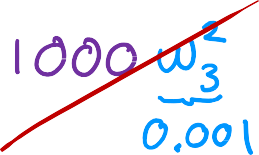 1000 w₃²
0.001